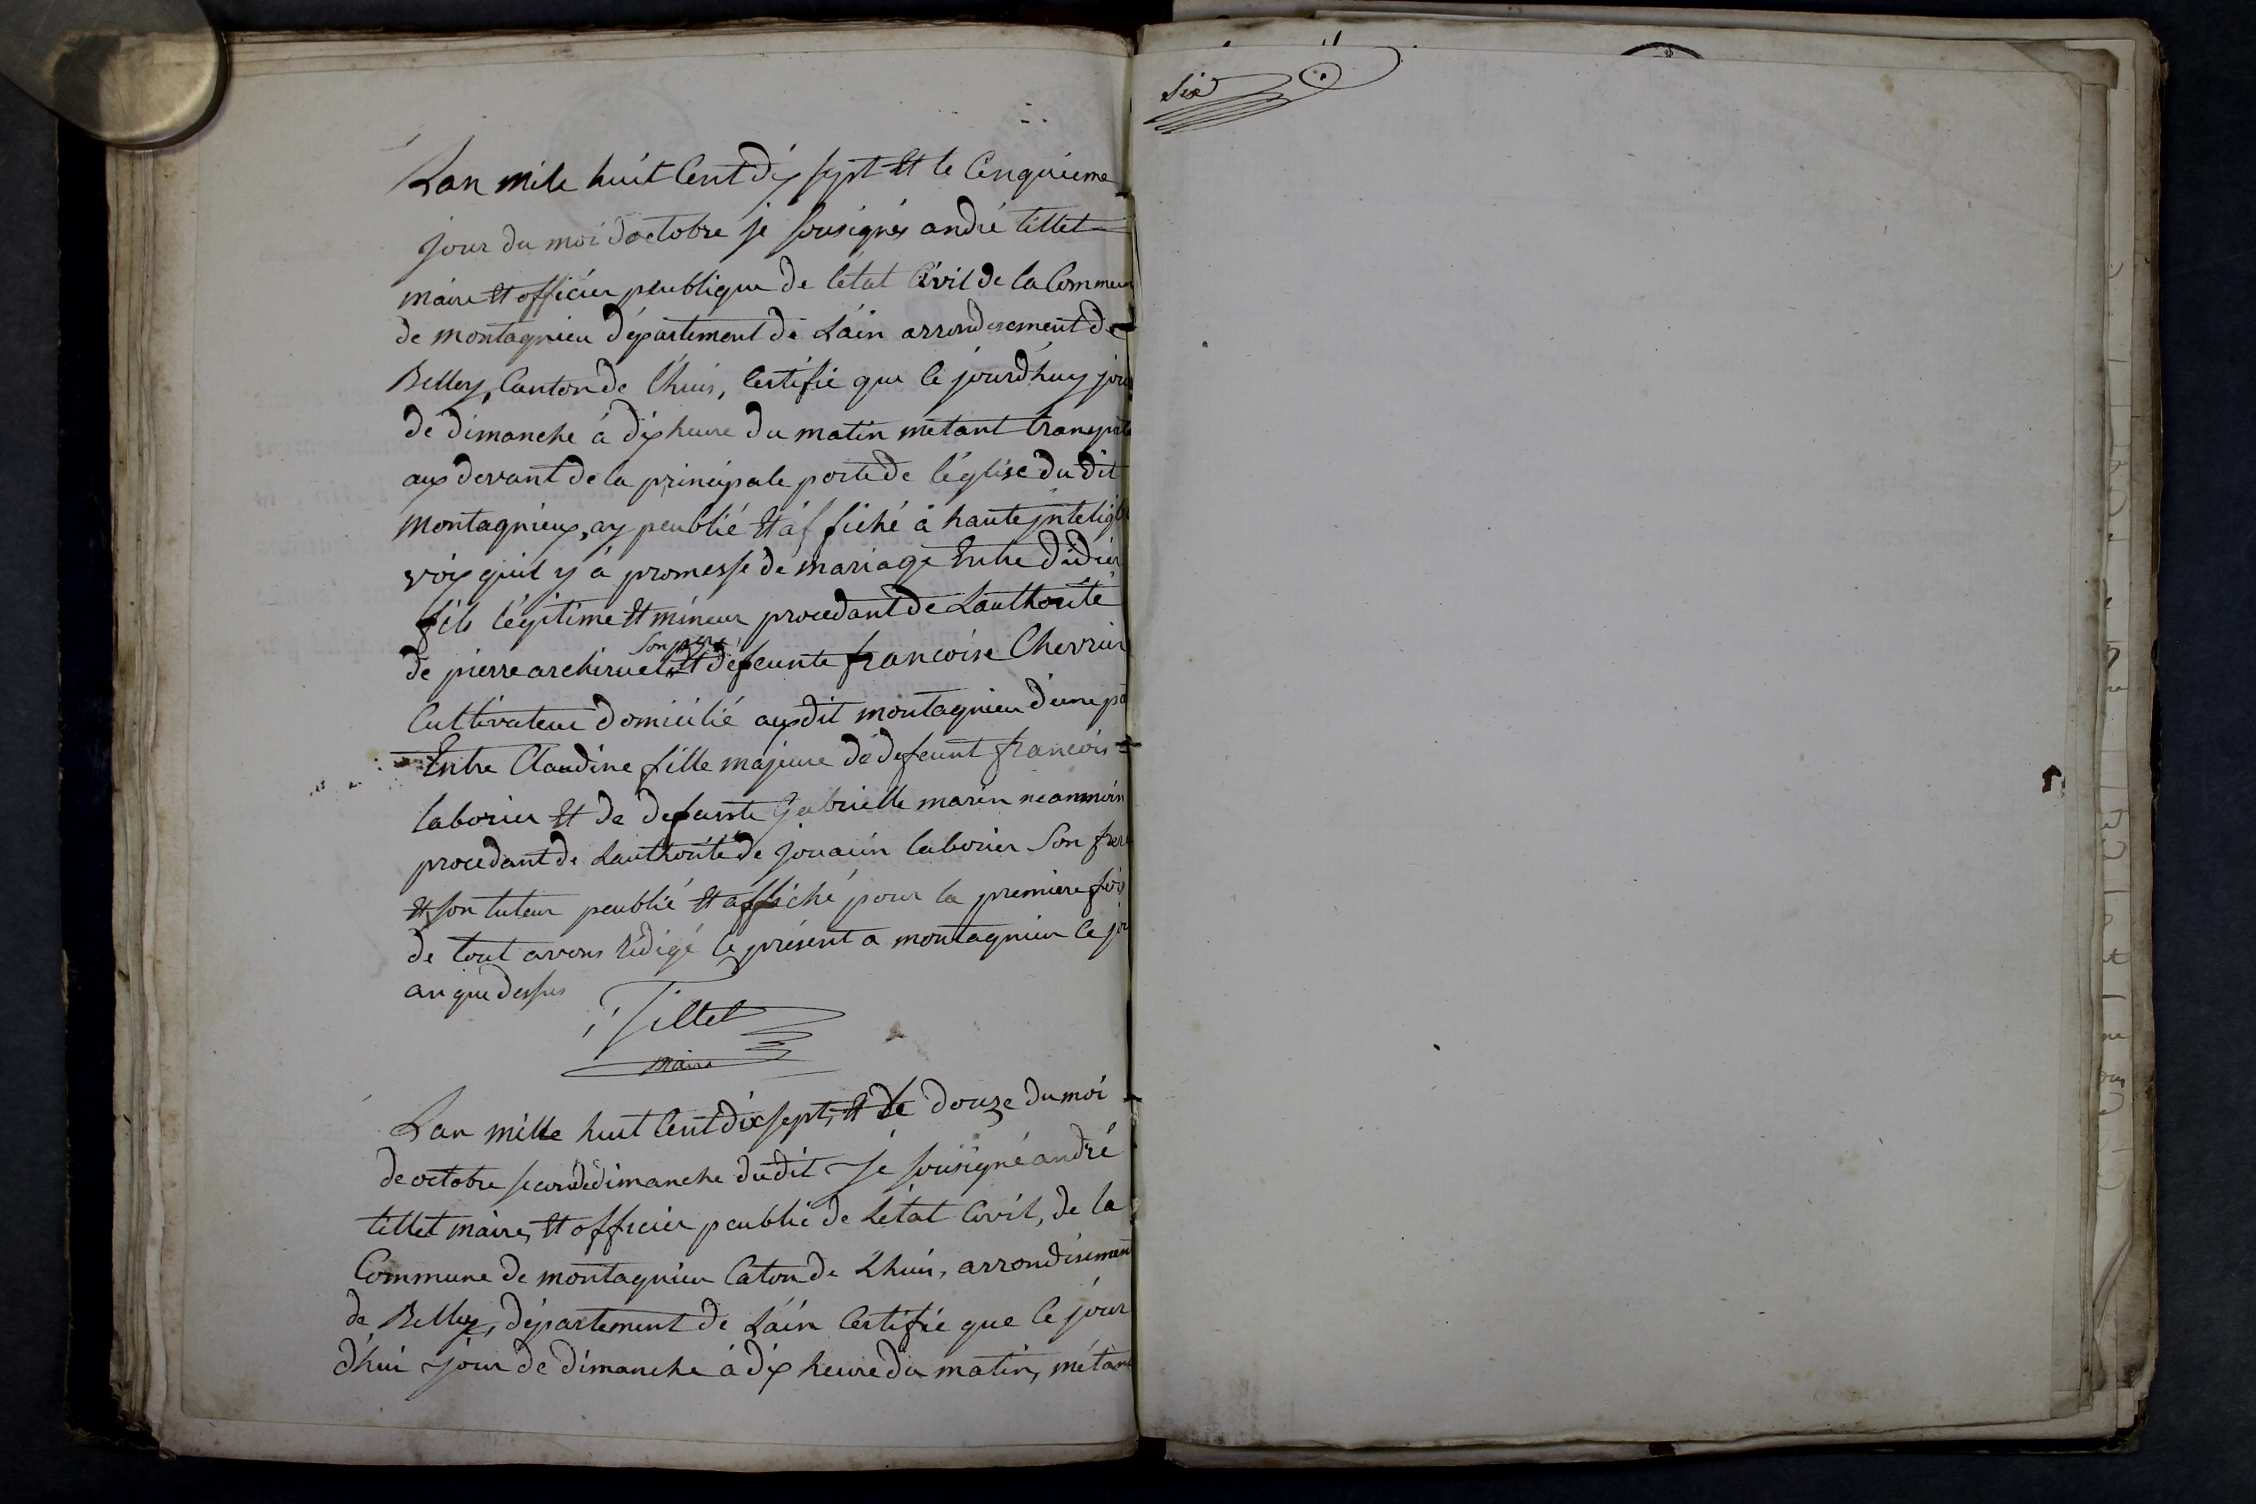 Lan mile huit Cent dix sept Et le Cinquieme
jour du moi doctobre je sousignés andré tillet
maire Et officier peublique de létat Civil de la Commun
de montagnieu département de Lain arrondisement de
Belley, Canton de Lhuis, Certifie que ce jourdhuy jour
de dimanche à dix heure du matin métant transport
aux devant de la principale porte de léglise du dit
Montagnieux, ay peublié Et affiché à haute jnteligb
voix quil y à promesse de mariage Entre didier
fils légitime Et mineur procedant de Lauthorité
son pere
de pierre archiruel Et défeunte francoise Chevrier
Cultivateur domicilié auxdit montagnieu d'une pa
Entre Claudine fille majeure de defeunt francois
laborier Et de defeunte gabrielle marin neanmoin
procedant de Lauthorité de jouacin laborier Son frere
Et son tuteur peublié Et affiché pour la premiere fois
de tout avons rédigé le présent a montagnieu ce jou
an que dessus
Tillet
maire
Lan mille huit Cent dix sept, Et le douze du moi
de octobre second dimanche dudit je sousigné andré
tillet maire, Et officier peublic de Létat Civil, de la
Commune de montagnieu Caton de Lhuis, arrondisement
de Belley, département de Láin Certifie que ce jour
dhui jour de dimanche à dix heure du matin, métant
six